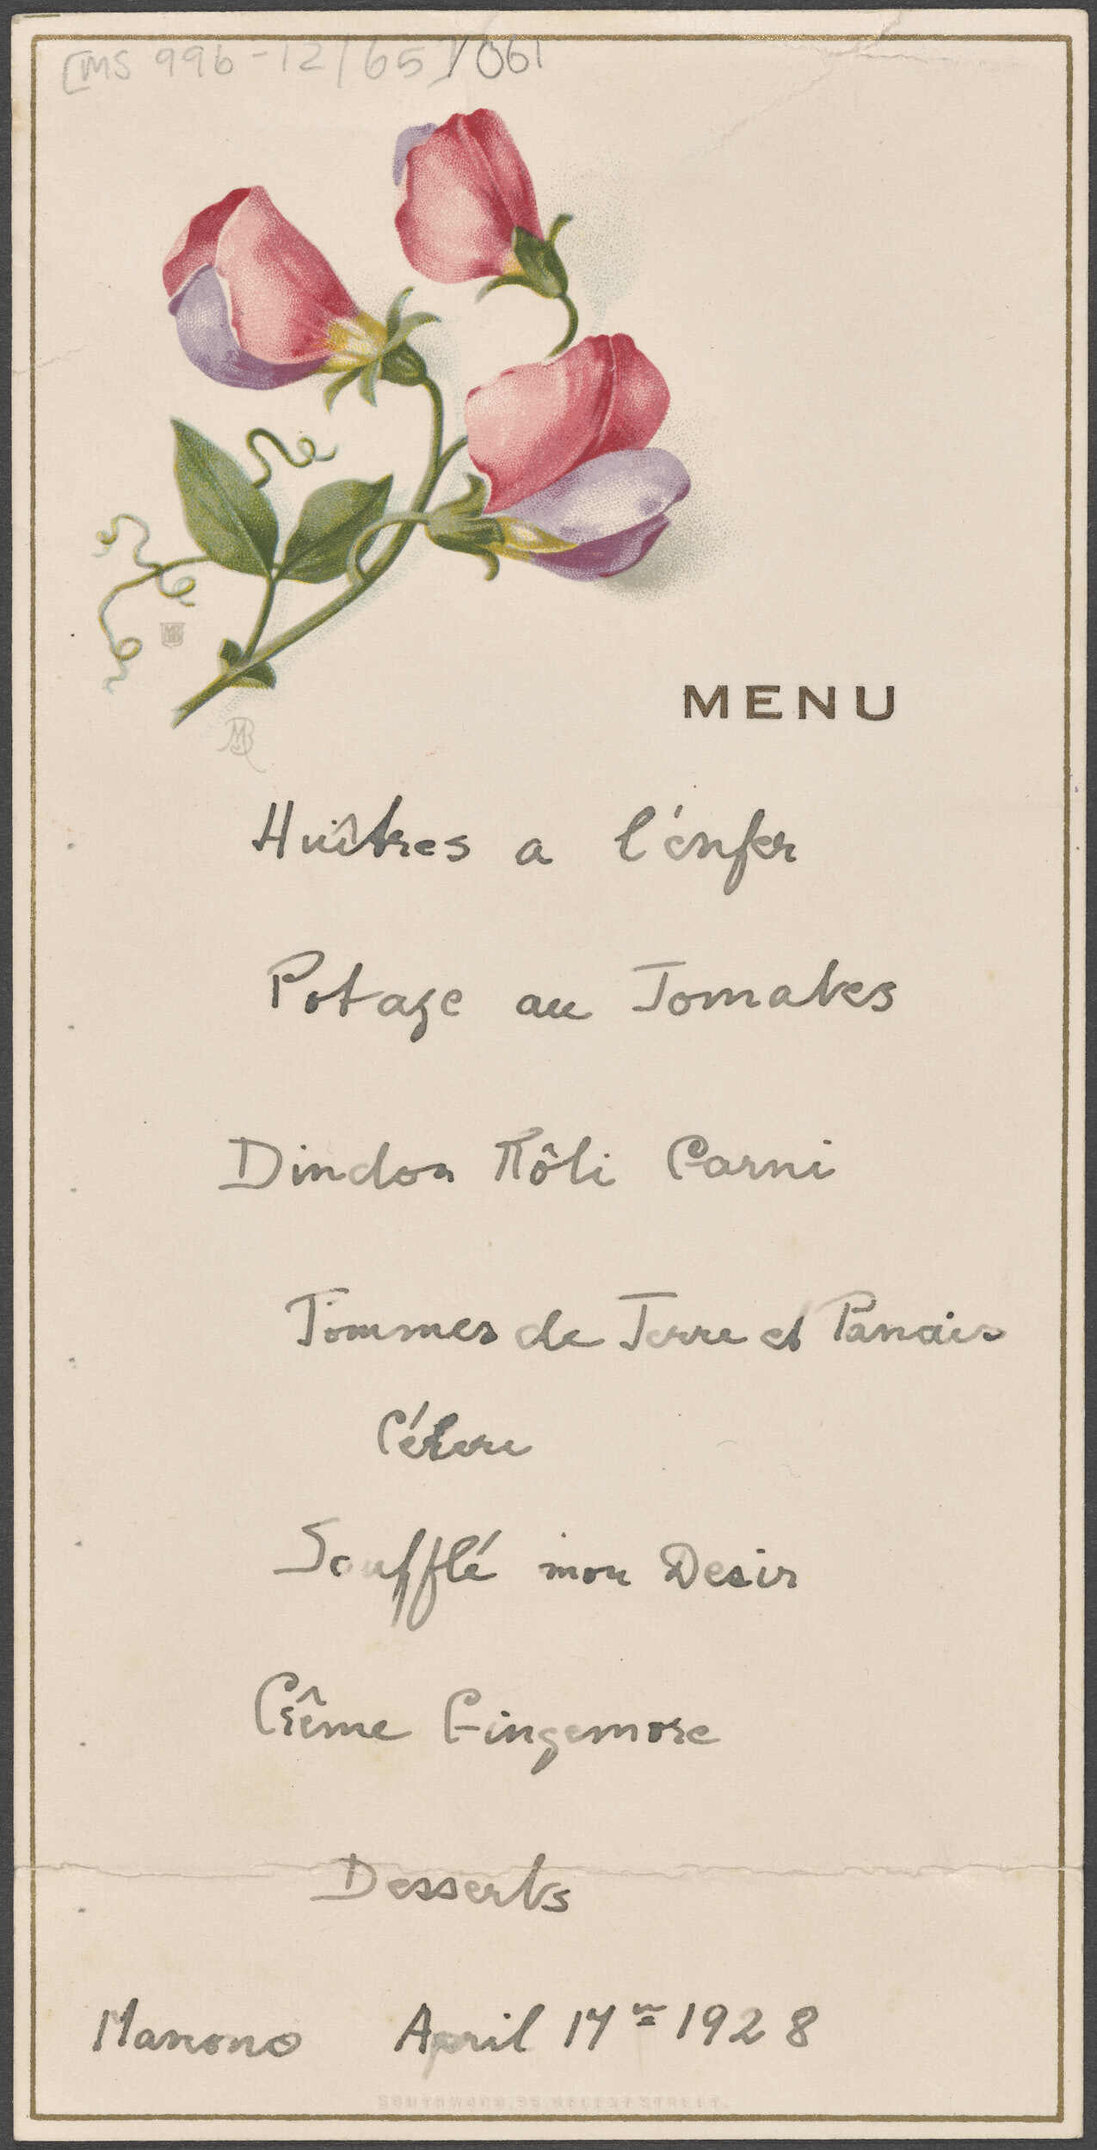 [MS 996-12/65]/061
MENU
Huîtres a l'énfer
Potage au Tomates
Dindon Rôti Garni
Pommes de Terre et Panais
Céleri
Soufflé mon Desir
Crême Gingemore
Desserts
Manono April 17th 1928